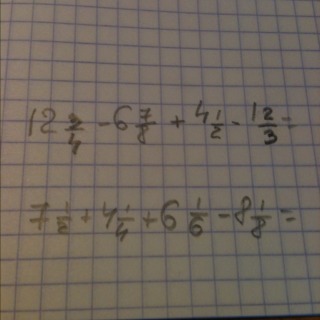 12 3/4 - 6 7/8 + 4 1/2 - 1 2/3 =
7 1/2 + 4 1/4 + 6 1/6 - 8 1/8 =